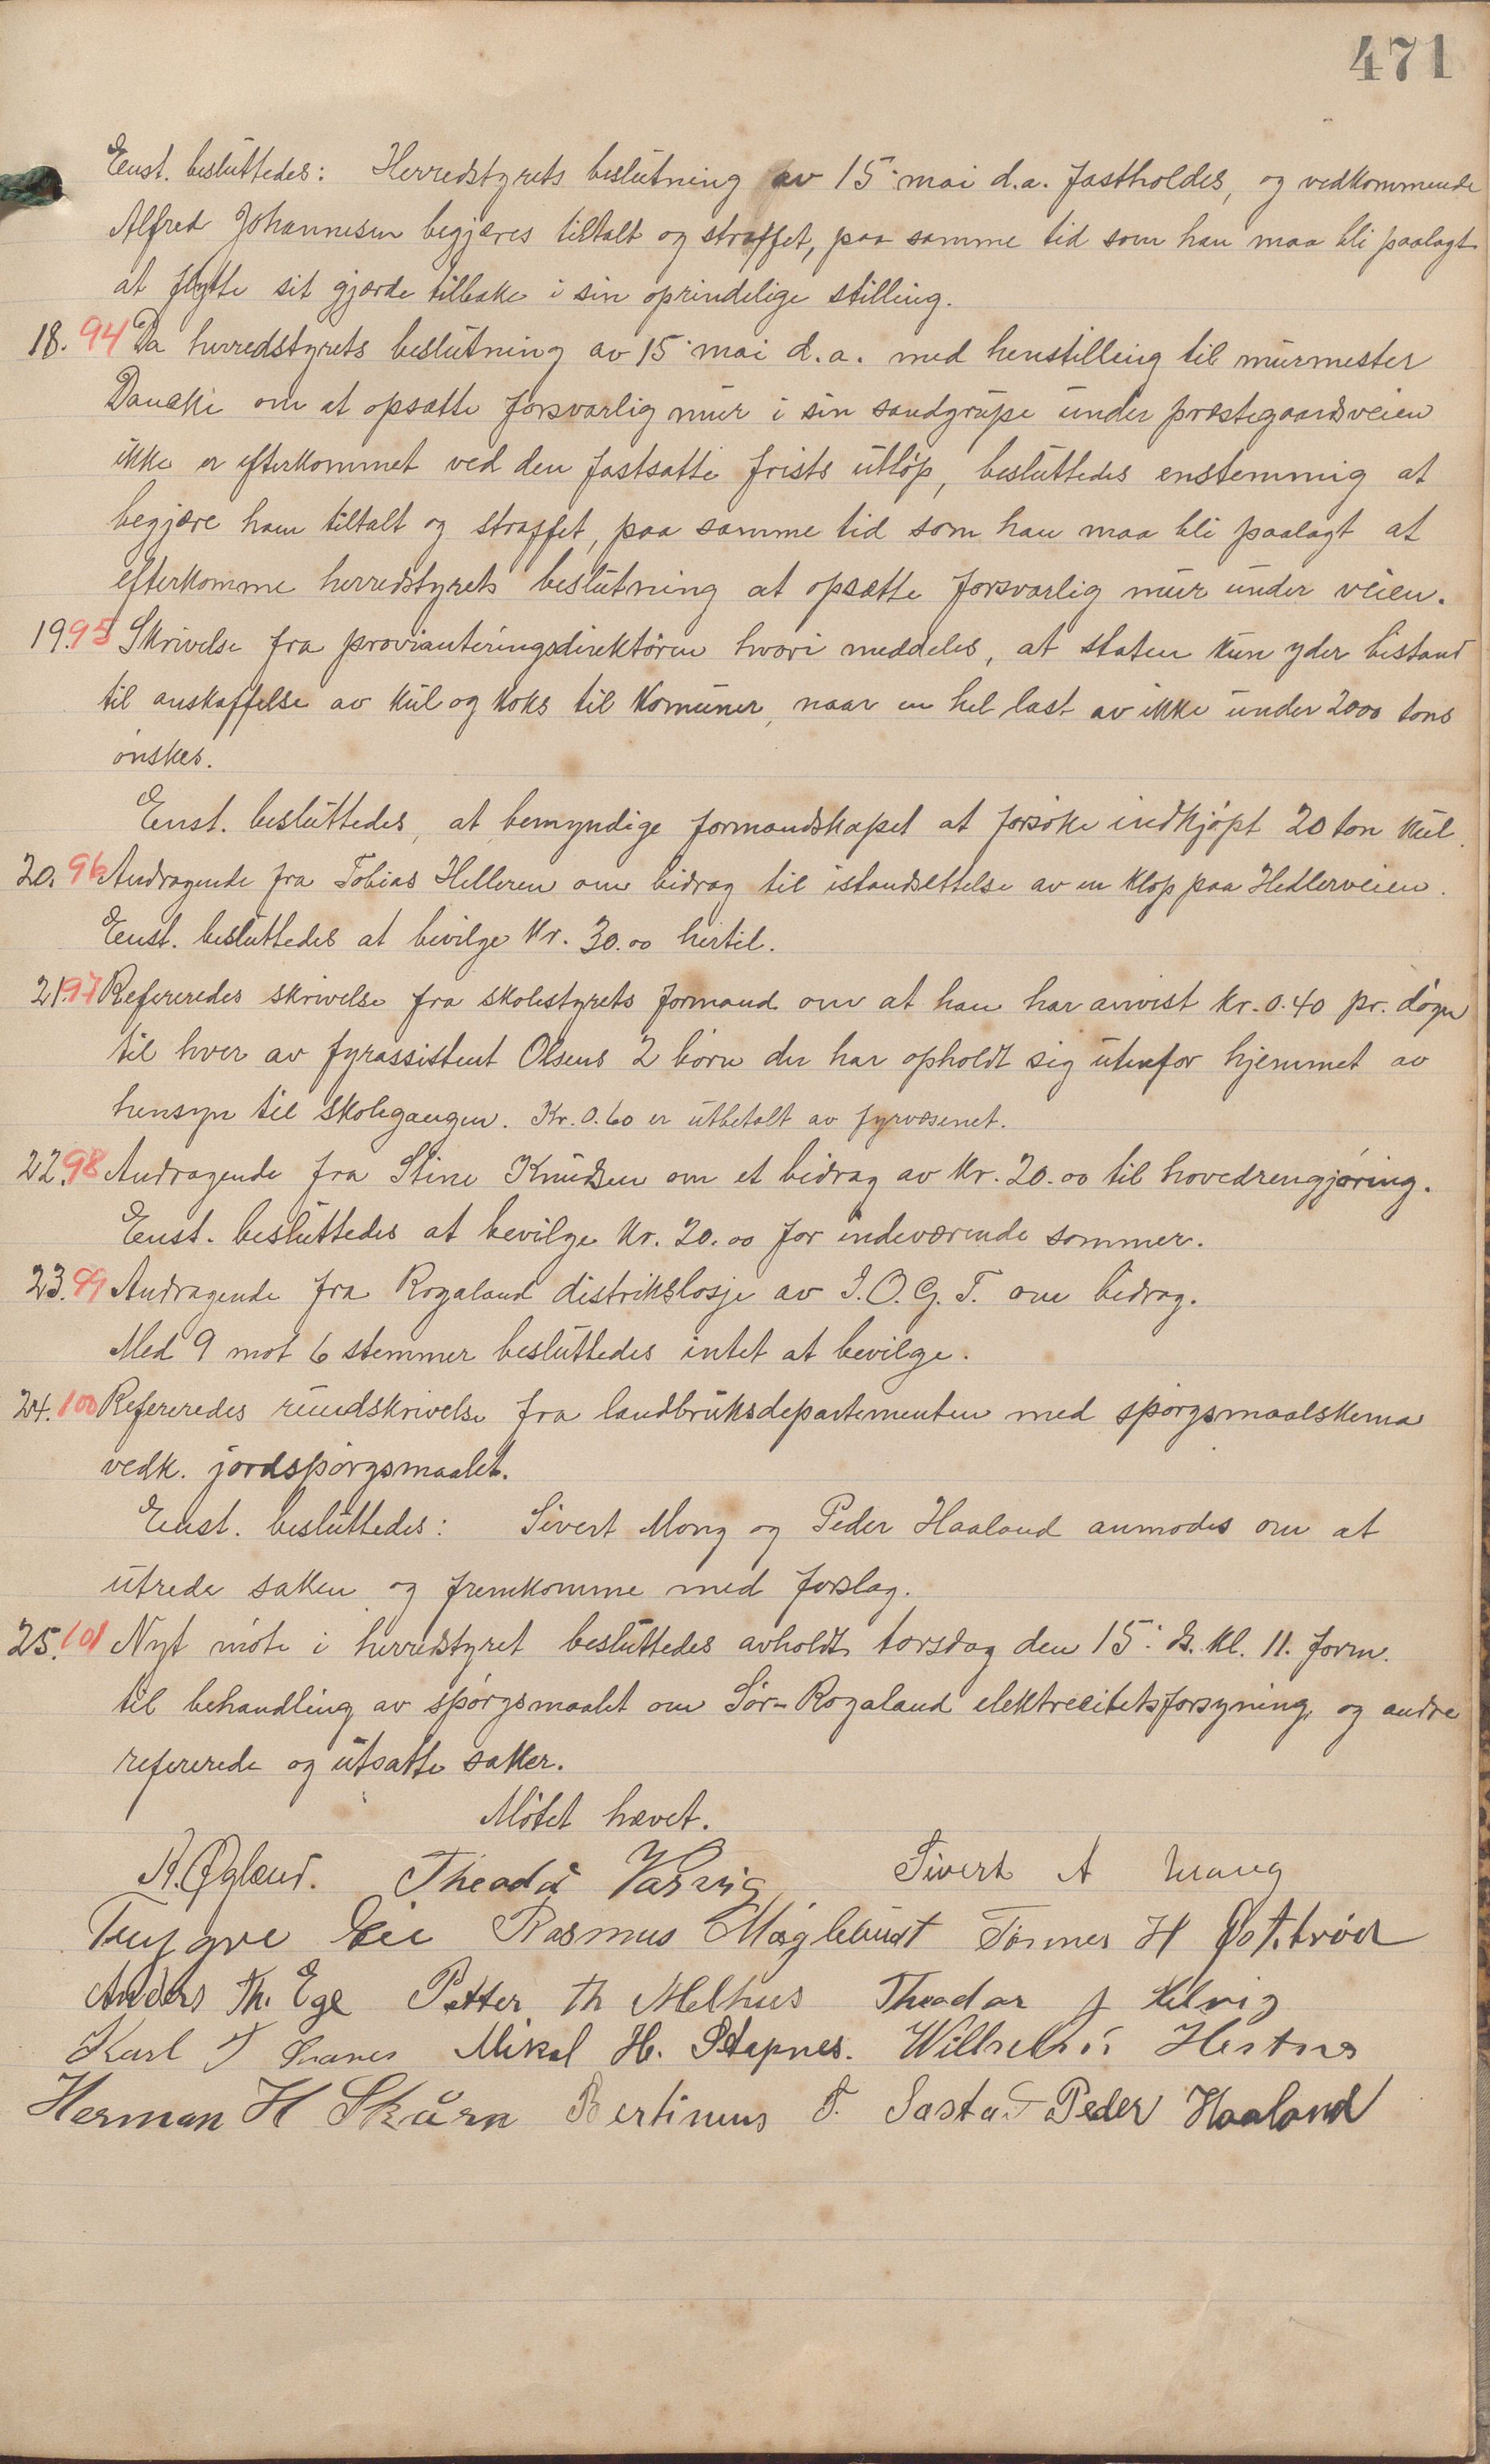 471
Enst. besluttedes: Herredstyrets beslutning av 15. mai d.a. fastholdes, og vedkommende
Alfred Johannesen begjæres tiltalt og straffet, paa samme tid som han maa bli paalagt
at flytte sit gjærde tilbake i sin oprindelige stilling.
18. 94 Da herredstyrets beslutning av 15. mai d.a. med henstilling til murmester
Danske om at opsætte forsvarlig mur i sin sandgrupe under præstegaardsveien
ikke er efterkommet ved den fastsatte frists utløp, besluttedes enstemmig at
begjære ham tiltalt og straffet, paa samme tid som han maa bli paalagt at
efterkomme herredstyrets beslutning at opsætte forsvarlig mur under veien.
19. 95 Skrivelse fra provianteringsdirektøren hvori meddeles, at staten kun yder bistand
til anskaffelse av kul og koks til komuner, naar en hel last av ikke under 2000 tons
ønskes.
Enst. besluttedes, at bemyndige formandskapet at forsøke indkjøpt 20 ton kul.
20. 96 Andragende fra Tobias Helleren om bidrag til istandsettelse av en klop paa Hedlerveien.
Enst. besluttedes at bevilge kr. 30.00 hertil.
21. 97 Refereredes skrivelse fra skolestyrets formand om at han har anvist kr. 0.40 pr. døgn
til hver av fyrassistent Olsens 2 børn der har opholdt sig utenfor hjemmet av
hensyn til skolegangen. Kr. 0.60 er utbetalt av fyrvæsenet.
22. 98 Andragende fra Stine Knudsen om et bidrag av kr. 20.00 til hovedrengjøring.
Enst. besluttedes at bevilge kr. 20.00 for indeværende sommer.
23. 99 Andragende fra Rogaland distrikslosje av I.O.G.T. om bidrag.
Med 9 mot 6 stemmer besluttedes intet at bevilge.
24. 100 Refereredes rundskrivelse fra landbruksdepartementen med spørgsmaalskema
vedk. jordspørgsmaalet.
Enst. besluttedes: Sivert Mong og Peder Haaland anmodes om at
utrede saken og fremkomme med forslag.
25. 101 Nyt møte i herredstyret besluttedes avholdt torsdag den 15. ds. kl. 11. form.
til behandling av spørgsmaalet om Sør-Rogaland elektrecitetsforsyning, og andre
refererede og utsatte saker.
Møtet hævet.
R. Øglænd. Theodor Varvig Sivert A Mong
Trygve Eie Rasmus Møglebust Tønnes H
Anders Th. Ege Petter Th Melhus Theodor
Karl T Mikal H. Stapnes. Wilhelm Hestnes
Herman H Skåra Bertinus T. Peder Haaland